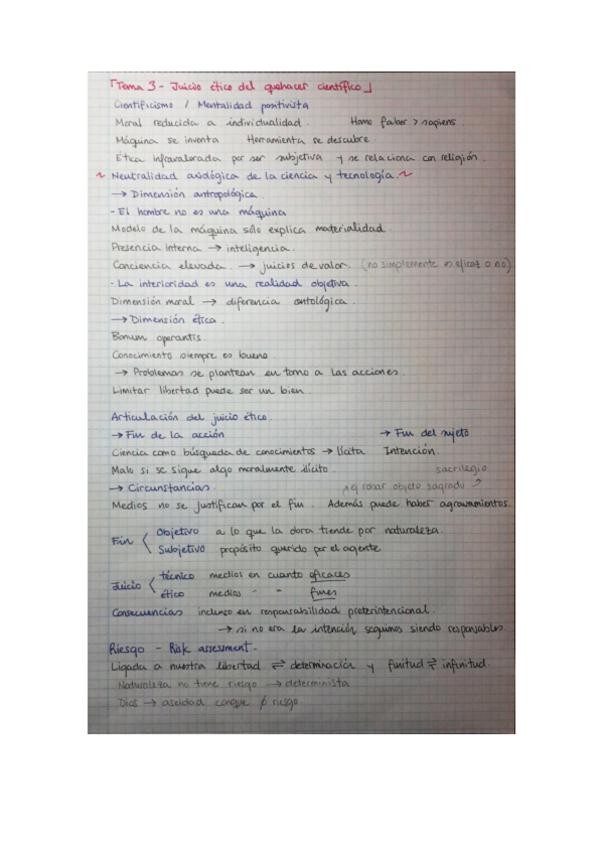 「Tema 3 - Juicio ético del quehacer científico」
Cientificismo / Mentalidad positivista
Moral reducida a individualidad. Homo faber > sapiens.
Máquina se inventa Herramienta se descubre.
Ética infravalorada por ser subjetiva y se relaciona con religión.
~ Neutralidad axiológica de la ciencia y tecnología. ~
→ Dimensión antropológica.
- El hombre no es una máquina
Modelo de la máquina sólo explica materialidad.
Presencia interna → inteligencia.
Conciencia elevada. → juicios de valor. (no simplemente es eficaz o no)
- La interioridad es una realidad objetiva.
Dimensión moral → diferencia ontológica.
→ Dimensión ética.
Bonum operantis.
Conocimiento siempre es bueno.
→ Problemas se plantean en torno a las acciones.
Limitar libertad puede ser un bien.
Articulación del juicio ético.
→ Fin de la acción → Fin del sujeto
Ciencia como búsqueda de conocimientos → lícita Intención.
Malo si se sigue algo moralmente ilícito sacrilegio
→ Circunstancias. ej robar objeto sagrado
Medios no se justifican por el fin. Además puede haber agravamientos.
Fin Objetivo a lo que la obra tiende por naturaleza.
Subjetivo propósito querido por el agente
Juicio técnico medios en cuanto eficaces
ético medios " " fines
Consecuencias incluso en responsabilidad preterintencional.
→ si no era la intención seguimos siendo responsables
Riesgo - Risk assesment.
Ligada a nuestra libertad ⇌ determinación y finitud ⇌ infinitud.
Naturaleza no tiene riesgo → determinista
Dios → aseidad conque ∄ riesgo